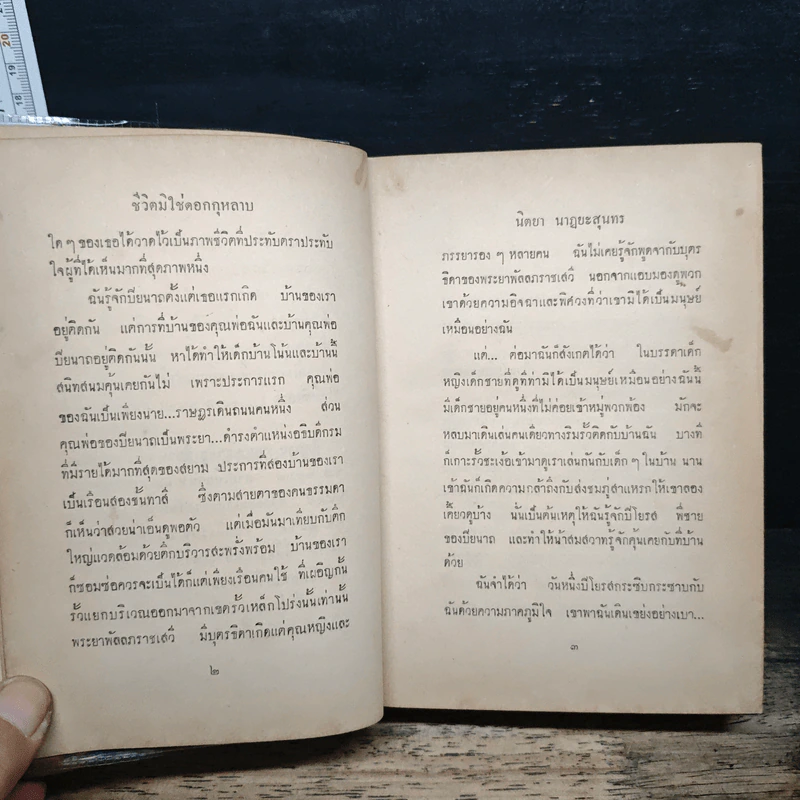 20
19
18
ชีวิตมิใช่ดอกกุหลาบ
ใด ๆ ของเธอได้วาดไว้เป็นภาพชีวิตที่ประทับตราประทับ
ใจผู้ที่ได้เห็นมากที่สุดภาพหนึ่ง
ฉันรู้จักปิยนาถตั้งแต่เธอแรกเกิด บ้านของเรา
อยู่ติดกัน แต่การที่บ้านของคุณพ่อฉันและบ้านคุณพ่อ
ปิยนาถอยู่ติดกันนั้น หาได้ทำให้เด็กบ้านโน้นและบ้านนี้
สนิทสนมคุ้นเคยกันไม่ เพราะประการแรก คุณพ่อ
ของฉันเป็นเพียงนาย...ราษฎรเดินถนนคนหนึ่ง ส่วน
คุณพ่อของปิยนาถเป็นพระยา...ดำรงตำแหน่งอธิบดีกรม
ที่มีรายได้มากที่สุดของสยาม ประการที่สองบ้านของเรา
เป็นเรือนสองชั้นทาสี ซึ่งตามสายตาของคนธรรมดา
ก็เห็นว่าสวยน่าเอ็นดูพอตัว แต่เมื่อมันมาเทียบกับตึก
ใหญ่แวดล้อมด้วยตึกบริวารสะพรั่งพร้อม บ้านของเรา
ก็ซอมซ่อควรจะเป็นได้ก็แต่เพียงเรือนคนใช้ ที่เผอิญกั้น
รั้วแยกบริเวณออกมาจากเขตรั้วเหล็กโปร่งนั้นเท่านั้น
พระยาพัลลภราชเสวี มีบุตรธิดาเกิดแต่คุณหญิงและ
๒
นิตยา นาฏยะสุนทร
ภรรยารอง ๆ หลายคน ฉันไม่เคยรู้จักพูดจากับบุตร
ธิดาของพระยาพัลลภราชเสวี นอกจากแอบมองดูพวก
เขาด้วยความอิจฉาและพิศวงที่ว่าเขามิได้เป็นมนุษย์
เหมือนอย่างฉัน
แต่... ต่อมาฉันก็สังเกตได้ว่า ในบรรดาเด็ก
หญิงเด็กชายที่ดูทีท่ามิได้เป็นมนุษย์เหมือนอย่างฉันนี้
มีเด็กชายอยู่คนหนึ่งที่ไม่ค่อยเข้าหมู่พวกพ้อง มักจะ
หลบมาเดินเล่นคนเดียวทางริมรั้วติดกับบ้านฉัน บางที
ก็เกาะรั้วชะเง้อเข้ามาดูเราเล่นกันกับเด็ก ๆ ในบ้าน นาน
เข้าฉันก็เกิดความกล้าถึงกับส่งชมภู่สาแหรกให้เขาลอง
เคี้ยวดูบ้าง นั่นเป็นต้นเหตุให้ฉันรู้จักปิโยรส พี่ชาย
ของปิยนาถ และทำให้น้าสมสวาทรู้จักคุ้นเคยกับที่บ้าน
ด้วย
ฉันจำได้ว่า วันหนึ่งปิโยรสกระซิบกระซาบกับ
ฉันด้วยความภาคภูมิใจ เขาพาฉันเดินเขย่งอย่างเบา...
๓